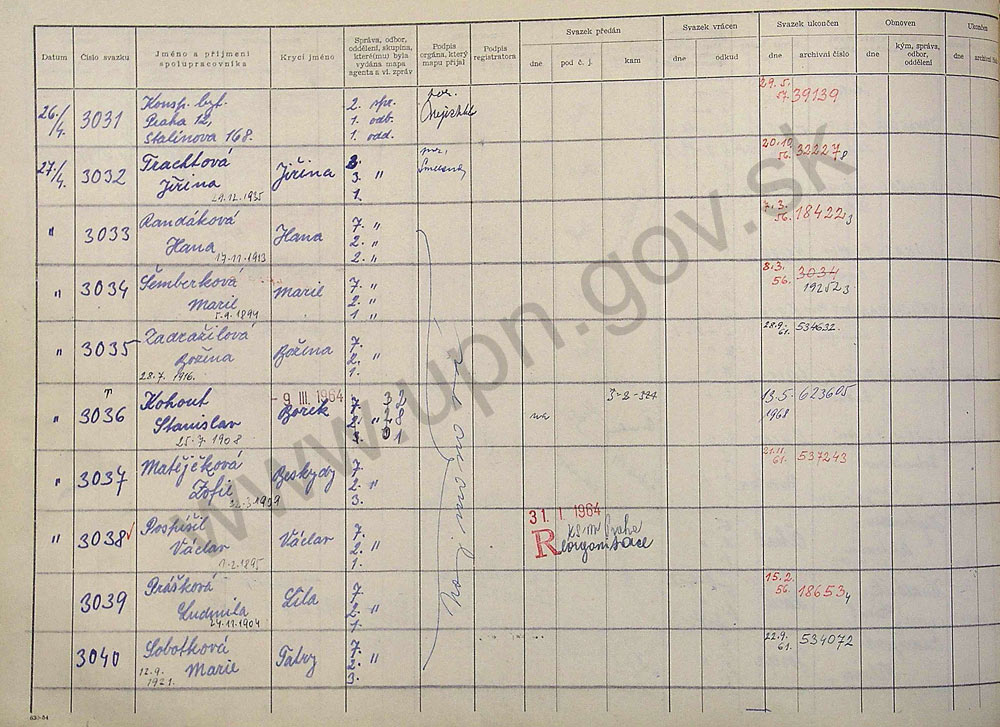 Datum
Číslo svazku
Jméno a příjmení spolupracovníka
Krycí jméno
Správa, odbor, oddělení, skupina, které(mu) byla vydána mapa agenta a vl. zpráv
Podpis orgána, který mapu přijal
Podpis registratora
Svazek předán
dne
pod č. j.
kam
Svazek vrácen
dne
odkud
Svazek ukončen
dne
archivní číslo
Obnoven
dne
kým, správa, odbor, oddělení
Ukončen
dne
archivní číslo
26./4. 3031 Konsp. byt. 2. spr. 29.5. 57. 39139
Praha 12, 1. odb.
Stalinova 168. 1. odd.
27/4. 3032 Trachtová Jiřina 3. " 20.10. 56. 322278
Jiřina 1.
21.12.1935
" 3033 Randáková Hana 7. " 7.3. 56. 184223
Hana 2. "
17-11-1913 2. "
" 3034 Šemberková Marie 7. " 8.3. 56. 3034
Marie 2. " 192523
5.9.1894 1. "
" 3035 Zadražilová Božina 7. 28.9. 61. 534632.
Božina 2. "
28.7. 1916. 1.
- 9 III. 1964
" 3036 Kohout Bořek 3-2-324 13.5. 623605
Stanislav 1968
25-7-1908
" 3037 Matějčková Beskydy 7. 21.11. 61. 537243
Žofie 2. "
1909 3.
31. I 1964
" 3038 Pospíšil Václav 7. KS-MV Praha
Václav 2. " Reorganisace
1-2-1895 1.
3039 Prášková Líla 7. 15.2. 56. 186534
Ludmila 2. "
24-11-1904 1.
3040 Sobotková Tatry 7. 22.9. 61. 534072
Marie 2. "
12.9. 1921. 3.
www.upn.gov.sk